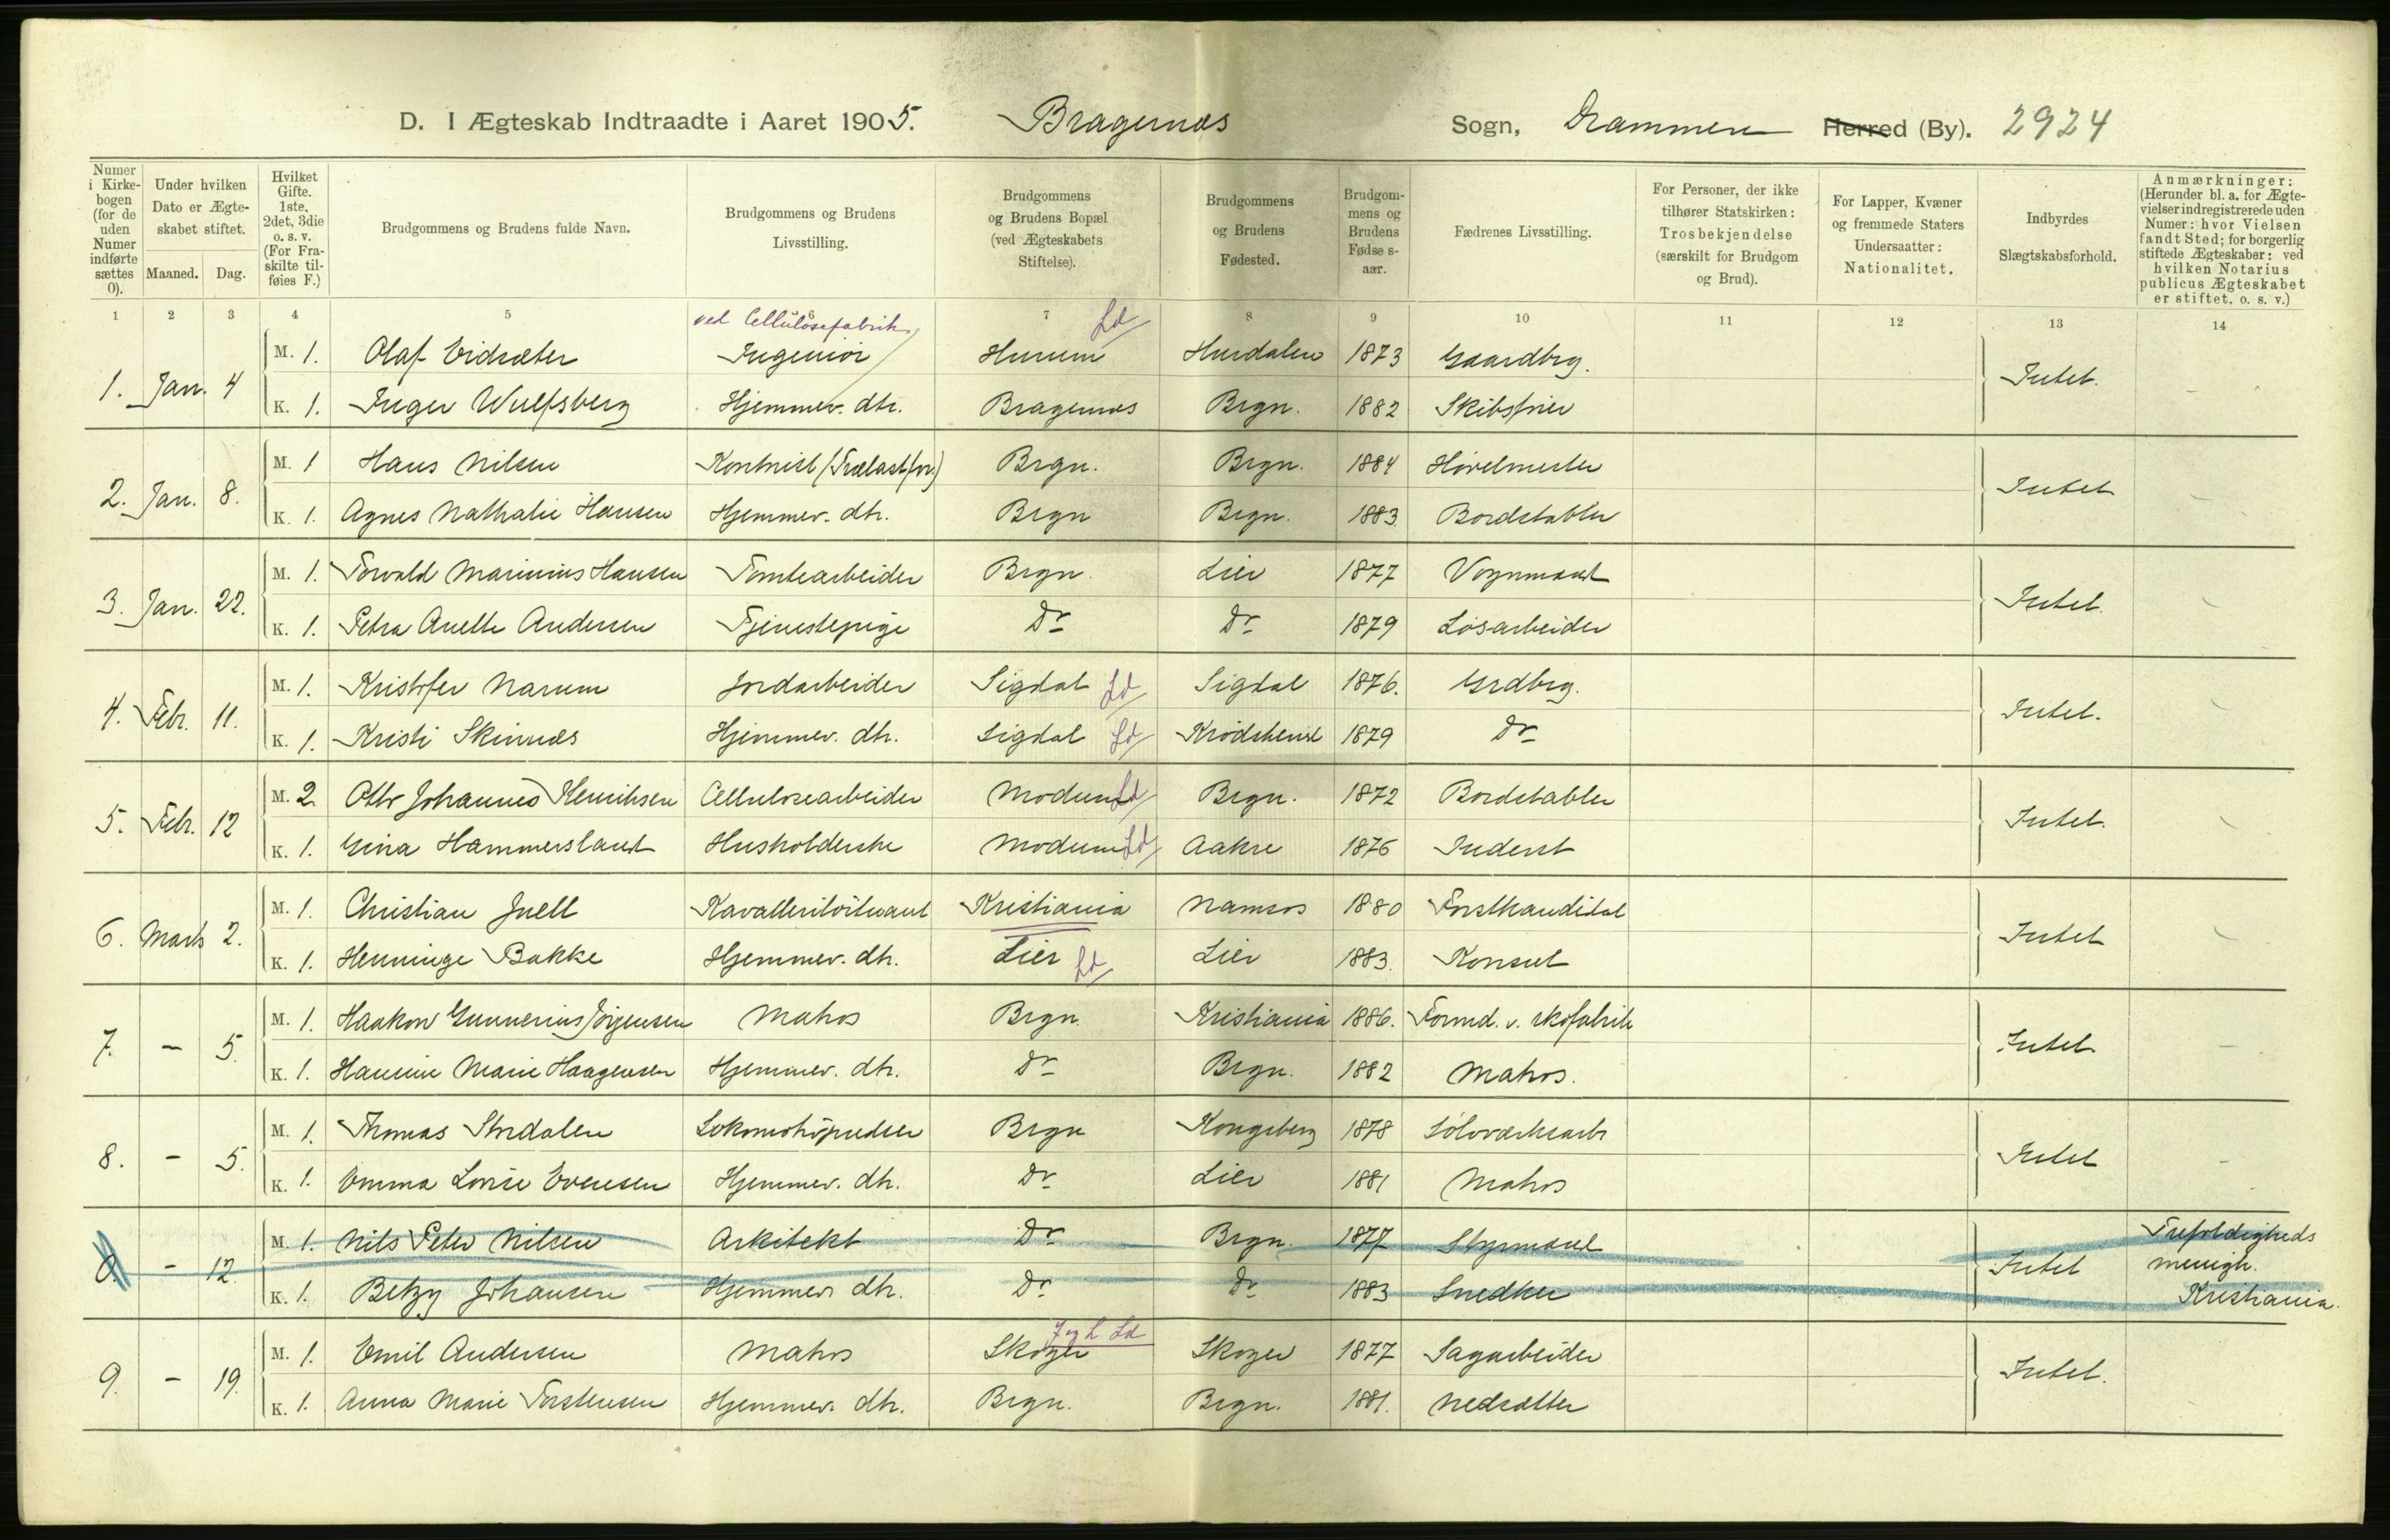 D. I Ægteskab Indtraadte i Aaret 1905. Bragernæs Sogn, Drammen Herred (By). 2924
Numer i Kirkebogen (for de uden Numer indførte sættes 0).
Under hvilken Dato er Ægteskabet stiftet.
Maaned. Dag.
Hvilket Gifte. 1ste, 2det, 3die o. s. v. (For Fraskilte tilføies F.)
Brudgommens og Brudens fulde Navn.
Brudgommens og Brudens Livsstilling.
Brudgommens og Brudens Bopæl (ved Ægteskabets Stiftelse).
Brudgommens og Brudens Fødested.
Brudgommens og Brudens Fødselsaar.
Fædrenes Livsstilling.
For Personer, der ikke tilhører Statskirken: Trosbekjendelse (særskilt for Brudgom og Brud).
For Lapper, Kvæner og fremmede Staters Undersaatter: Nationalitet.
Indbyrdes Slægtskabsforhold.
Anmærkninger: (Herunder bl. a. for Ægtevielser indregistrerede uden Numer: hvor Vielsen fandt Sted; for borgerlig stiftede Ægteskaber: ved hvilken Notarius publicus Ægteskabet er stiftet, o. s. v.)
1 2 3 4 5 6 7 8 9 10 11 12 13 14
ved Cellulosefabrik Ld
1. Jan. 4 M. 1. Olaf Eidsæter Ingeniör Hurum Hurdalen 1873 Gaardbrg. Intet.
K. 1. Inger Wulfsberg Hjemmev. dtr. Bragernæs Brgn. 1882 Skibsfører
2. Jan. 8. M. 1 Hans Nilsen Kontorist (Trælastforr.) Brgn. Brgn. 1884 Hövelmester Intet
K. 1. Agnes Nathalie Hansen Hjemmev. dtr. Brgn Brgn. 1883. Bordstabler
3. Jan. 22. M. 1. Torvald Marinius Hansen Tomtearbeider Brgn. Lier 1877 Vognmand Intet.
K. 1. Petra Anette Andersen Tjenestepige Do Do 1879 Lösarbeider
4. Febr. 11. M. 1. Kristofer Narum Jordarbeider Sigdal Ld Sigdal 1876. Grdbrg. Intet.
K. 1. Kristi Skinnæs Hjemmev. dtr. Sigdal Ld Krödsherred 1879 Do
5. Febr. 12 M. 2. Otto Johannes Henriksen Cellulosearbeider Modum Ld Brgn. 1872 Bordstabler Intet.
K. 1. Gina Hammersland Husholderske Modum Ld Aakre 1876 Inderst
6. Marts 2. M. 1. Christian Juell Kavalleriløitnant Kristiania Namsos 1880 Forstkandidat Intet
K. 1. Henninge Bakke Hjemmev. dtr. Lier Ld Lier 1883. Konsul
7. – 5. M. 1. Haakon Gunnerius Jörgensen Matros Brgn. Kristiania 1886. Formd. v. skofabrik Intet.
K. 1. Hansine Marie Haagensen Hjemmev. dtr. Do Brgn. 1882 Matros.
8. – 5. M. 1. Thomas Stordalen Lokomotivpudser Brgn Kongsberg 1878 Sölvværksarb. Intet
K. 1. Emma Lovise Evensen Hjemmev. dtr. Do Lier 1881 Matros
0. – 12. M. 1. Nils Peter Nilsen Arkitekt Do Brgn. 1877 Styrmand Intet Trefoldigheds
K. 1. Betzy Johansen Hjemmev. dtr. Do Do 1883 Snedker menigh. Kristiania.
9. – 19. M. 1. Emil Andersen Matros Skoger J og L Ld Skoger 1877 Sagarbeider Intet.
K. 1. Anna Marie Torstensen Hjemmev. dtr. Brgn. Brgn. 1881. Nedsætter